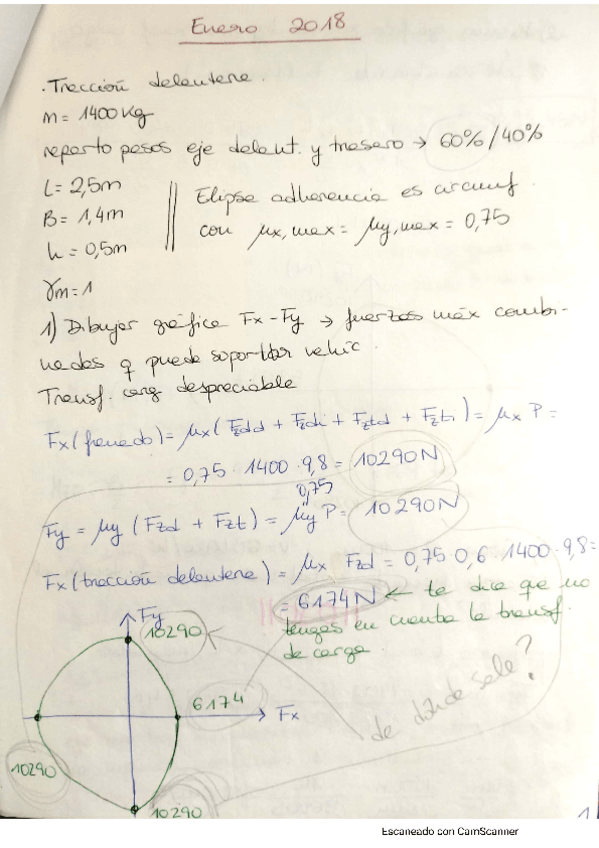 Enero 2018
. Tracción delantera.
m = 1400 Kg
reparto pesos eje delant. y trasero → 60% / 40%
L = 2,5m
B = 1,4m
h = 0,5m
Elipse adherencia es circunf.
con μx,max = μy,max = 0,75
γm = 1
1) Dibujar gráfica Fx - Fy → fuerzas máx combi-
nadas q puede soportar vehíc.
Transf. carg despreciable
Fx (frenado) = μx (Fzdd + Fzdi + Fztd + Fzti) = μx P =
= 0,75 · 1400 · 9,8 = 10290N
0,75
Fy = μy (Fzd + Fzt) = μy P = 10290N
Fx (tracción delantera) = μx Fzd = 0,75 · 0,6 · 1400 · 9,8 =
= 6174N ← te dice que no
tengas en cuenta la transf.
de carga
Fy
10290
6174
Fx
de dónde sale?
10290
10290
1
Escaneado con CamScanner